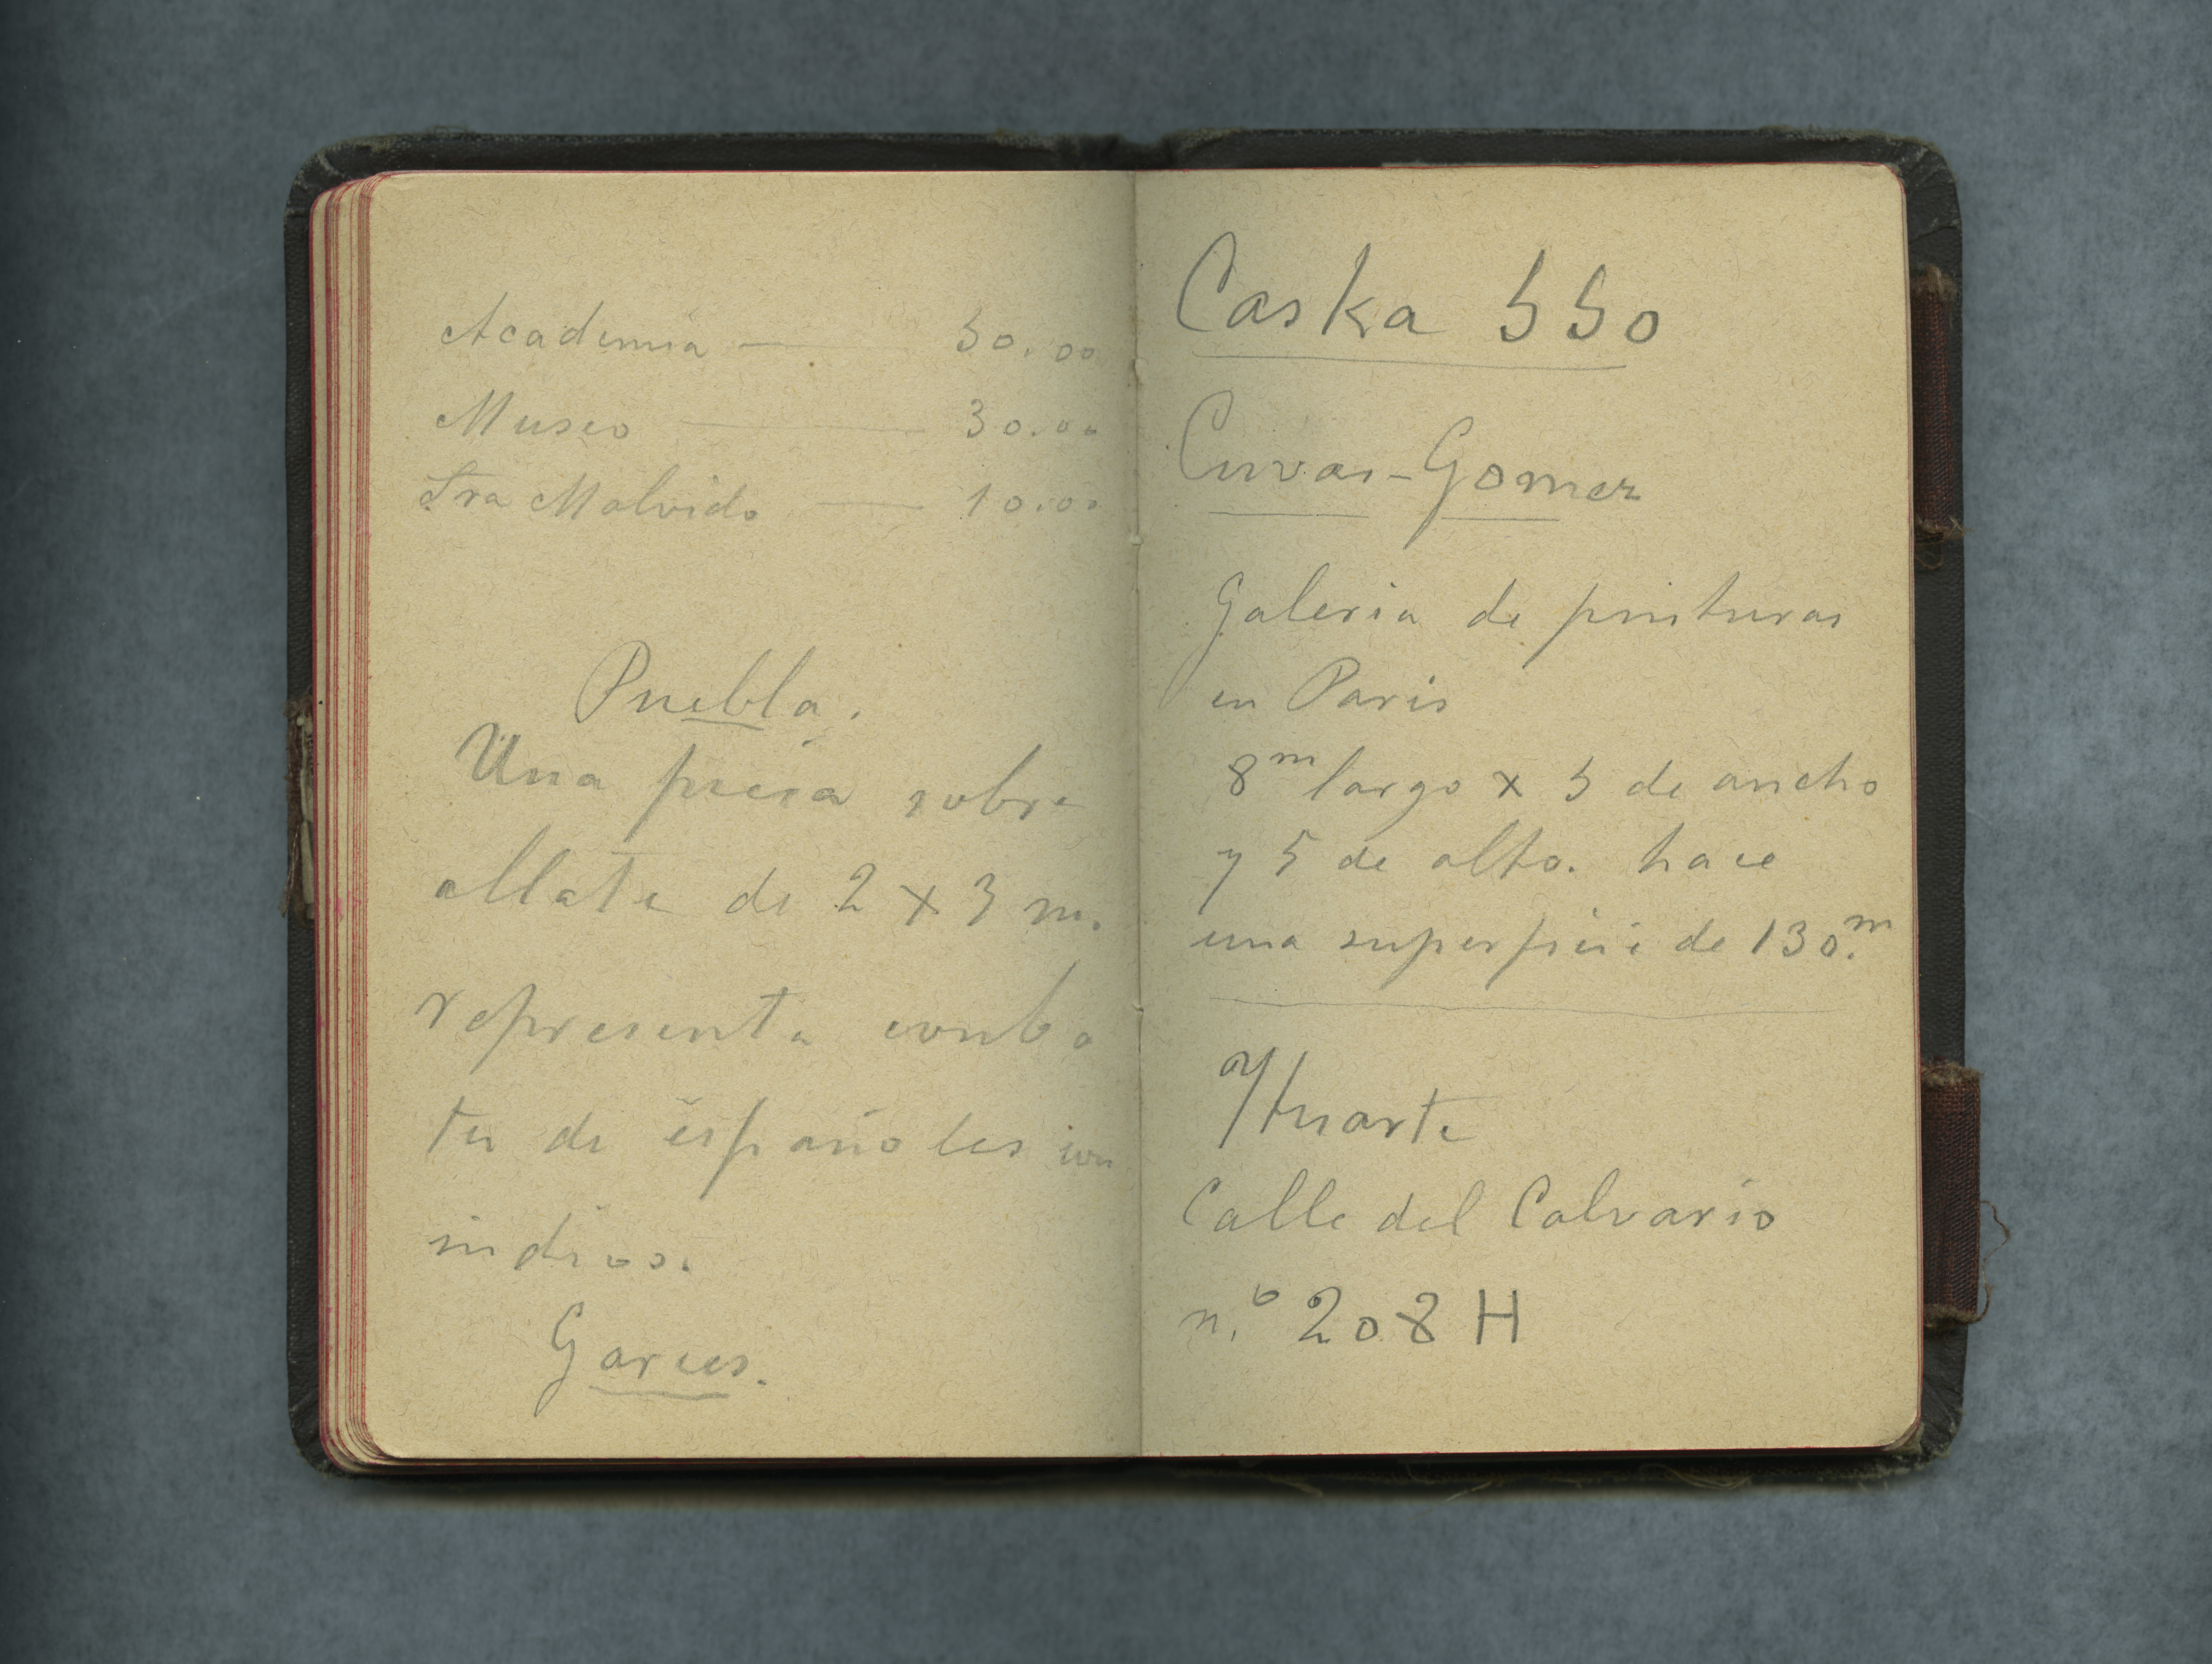 Academia — 50.00
Museo — 30.00
Sra Malvido — 10.00
Puebla.
Una piesa sobre
allate de 2 x 3 m.
representa comba
te de españoles con
indios.
Garces.
Caska 550
Cuvas-Gomez
Galeria de pinturas
en Paris
8m largo x 5 de ancho
y 5 de alto. hace
una superficie de 130.m
Huarte
Calle del Calvario
n.o 208 H